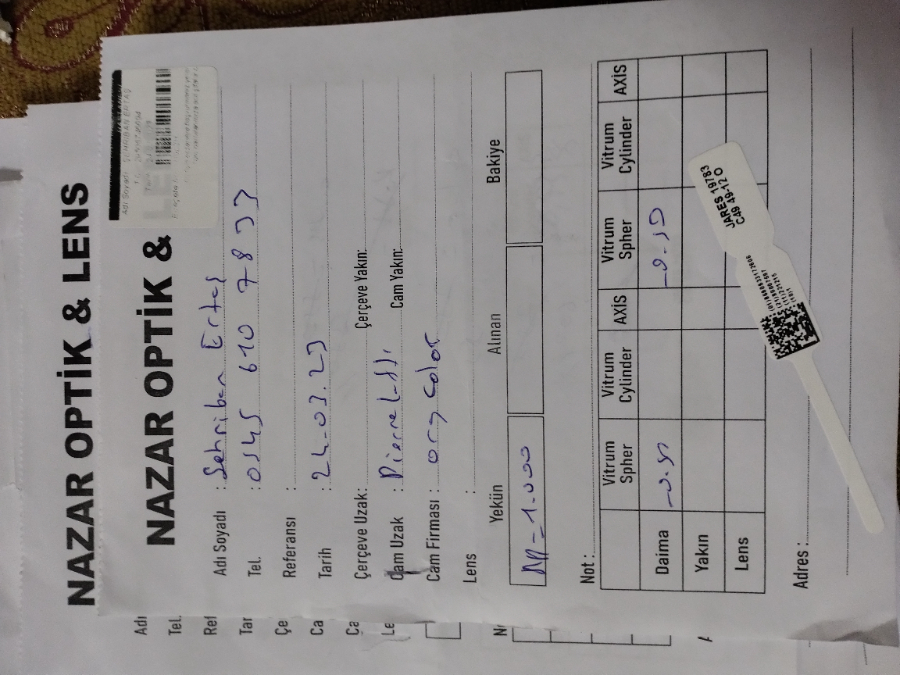 NAZAR OPTİK & LENS
NAZAR OPTİK &
Adı Soyadı : Şehriban Ertaş
Tel. : 0545 610 7833
Referansı :
Tarih : 24-03.23
Çerçeve Uzak: Çerçeve Yakın:
Cam Uzak : Cam Yakın:
Cam Firması : org color
Lens :
Yekün Alınan Bakiye
1.000
Not :
Vitrum Spher Vitrum Cylinder AXIS Vitrum Spher Vitrum Cylinder AXIS
Daima -0.50 -0.50
Yakın
Lens
Adres :
JARES 19783
C49 49-12 O
Adı
Tel.
Ref
Tar
Çe
Ca
Ça
Le